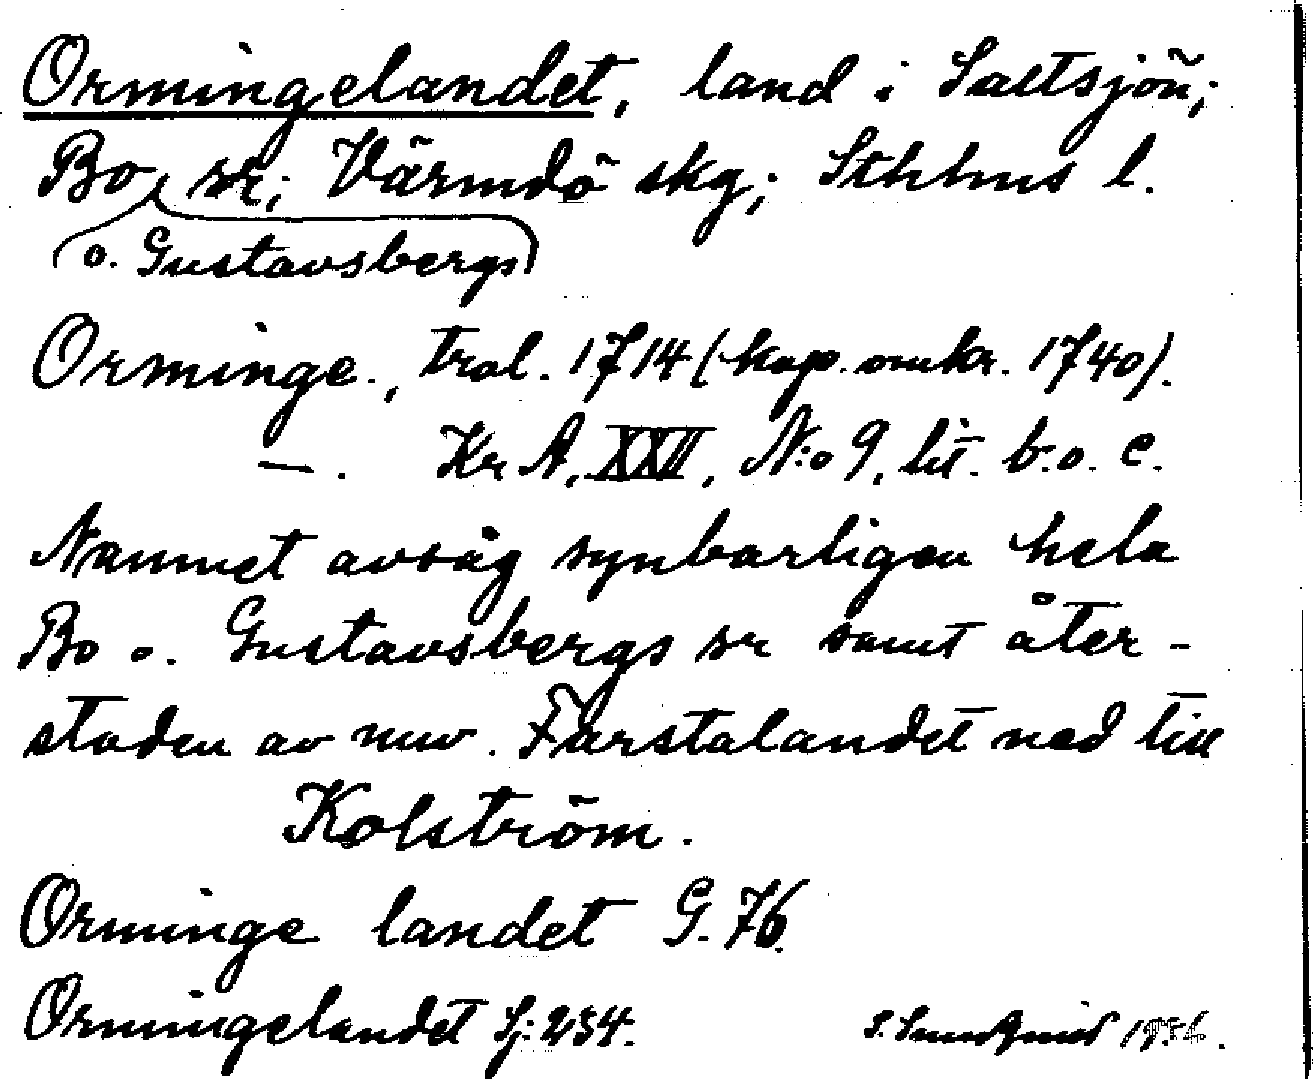 Ormingelandet, land i Saltsjön;
Bo sr; Värmdö skg; Sthlms l.
(o. Gustavsbergs)
Orminge, trol. 1714 (kop. omkr. 1740).
—. Kr A, XXII, N:o 9, lit. b. o. c.
Namnet avsåg synbarligen hela
Bo o. Gustavsbergs sr samt åter-
stoden av nuv. Farstalandet ned till
Kolström.
Orminge landet G. 76.
Ormingelandet Sj: 234. 19